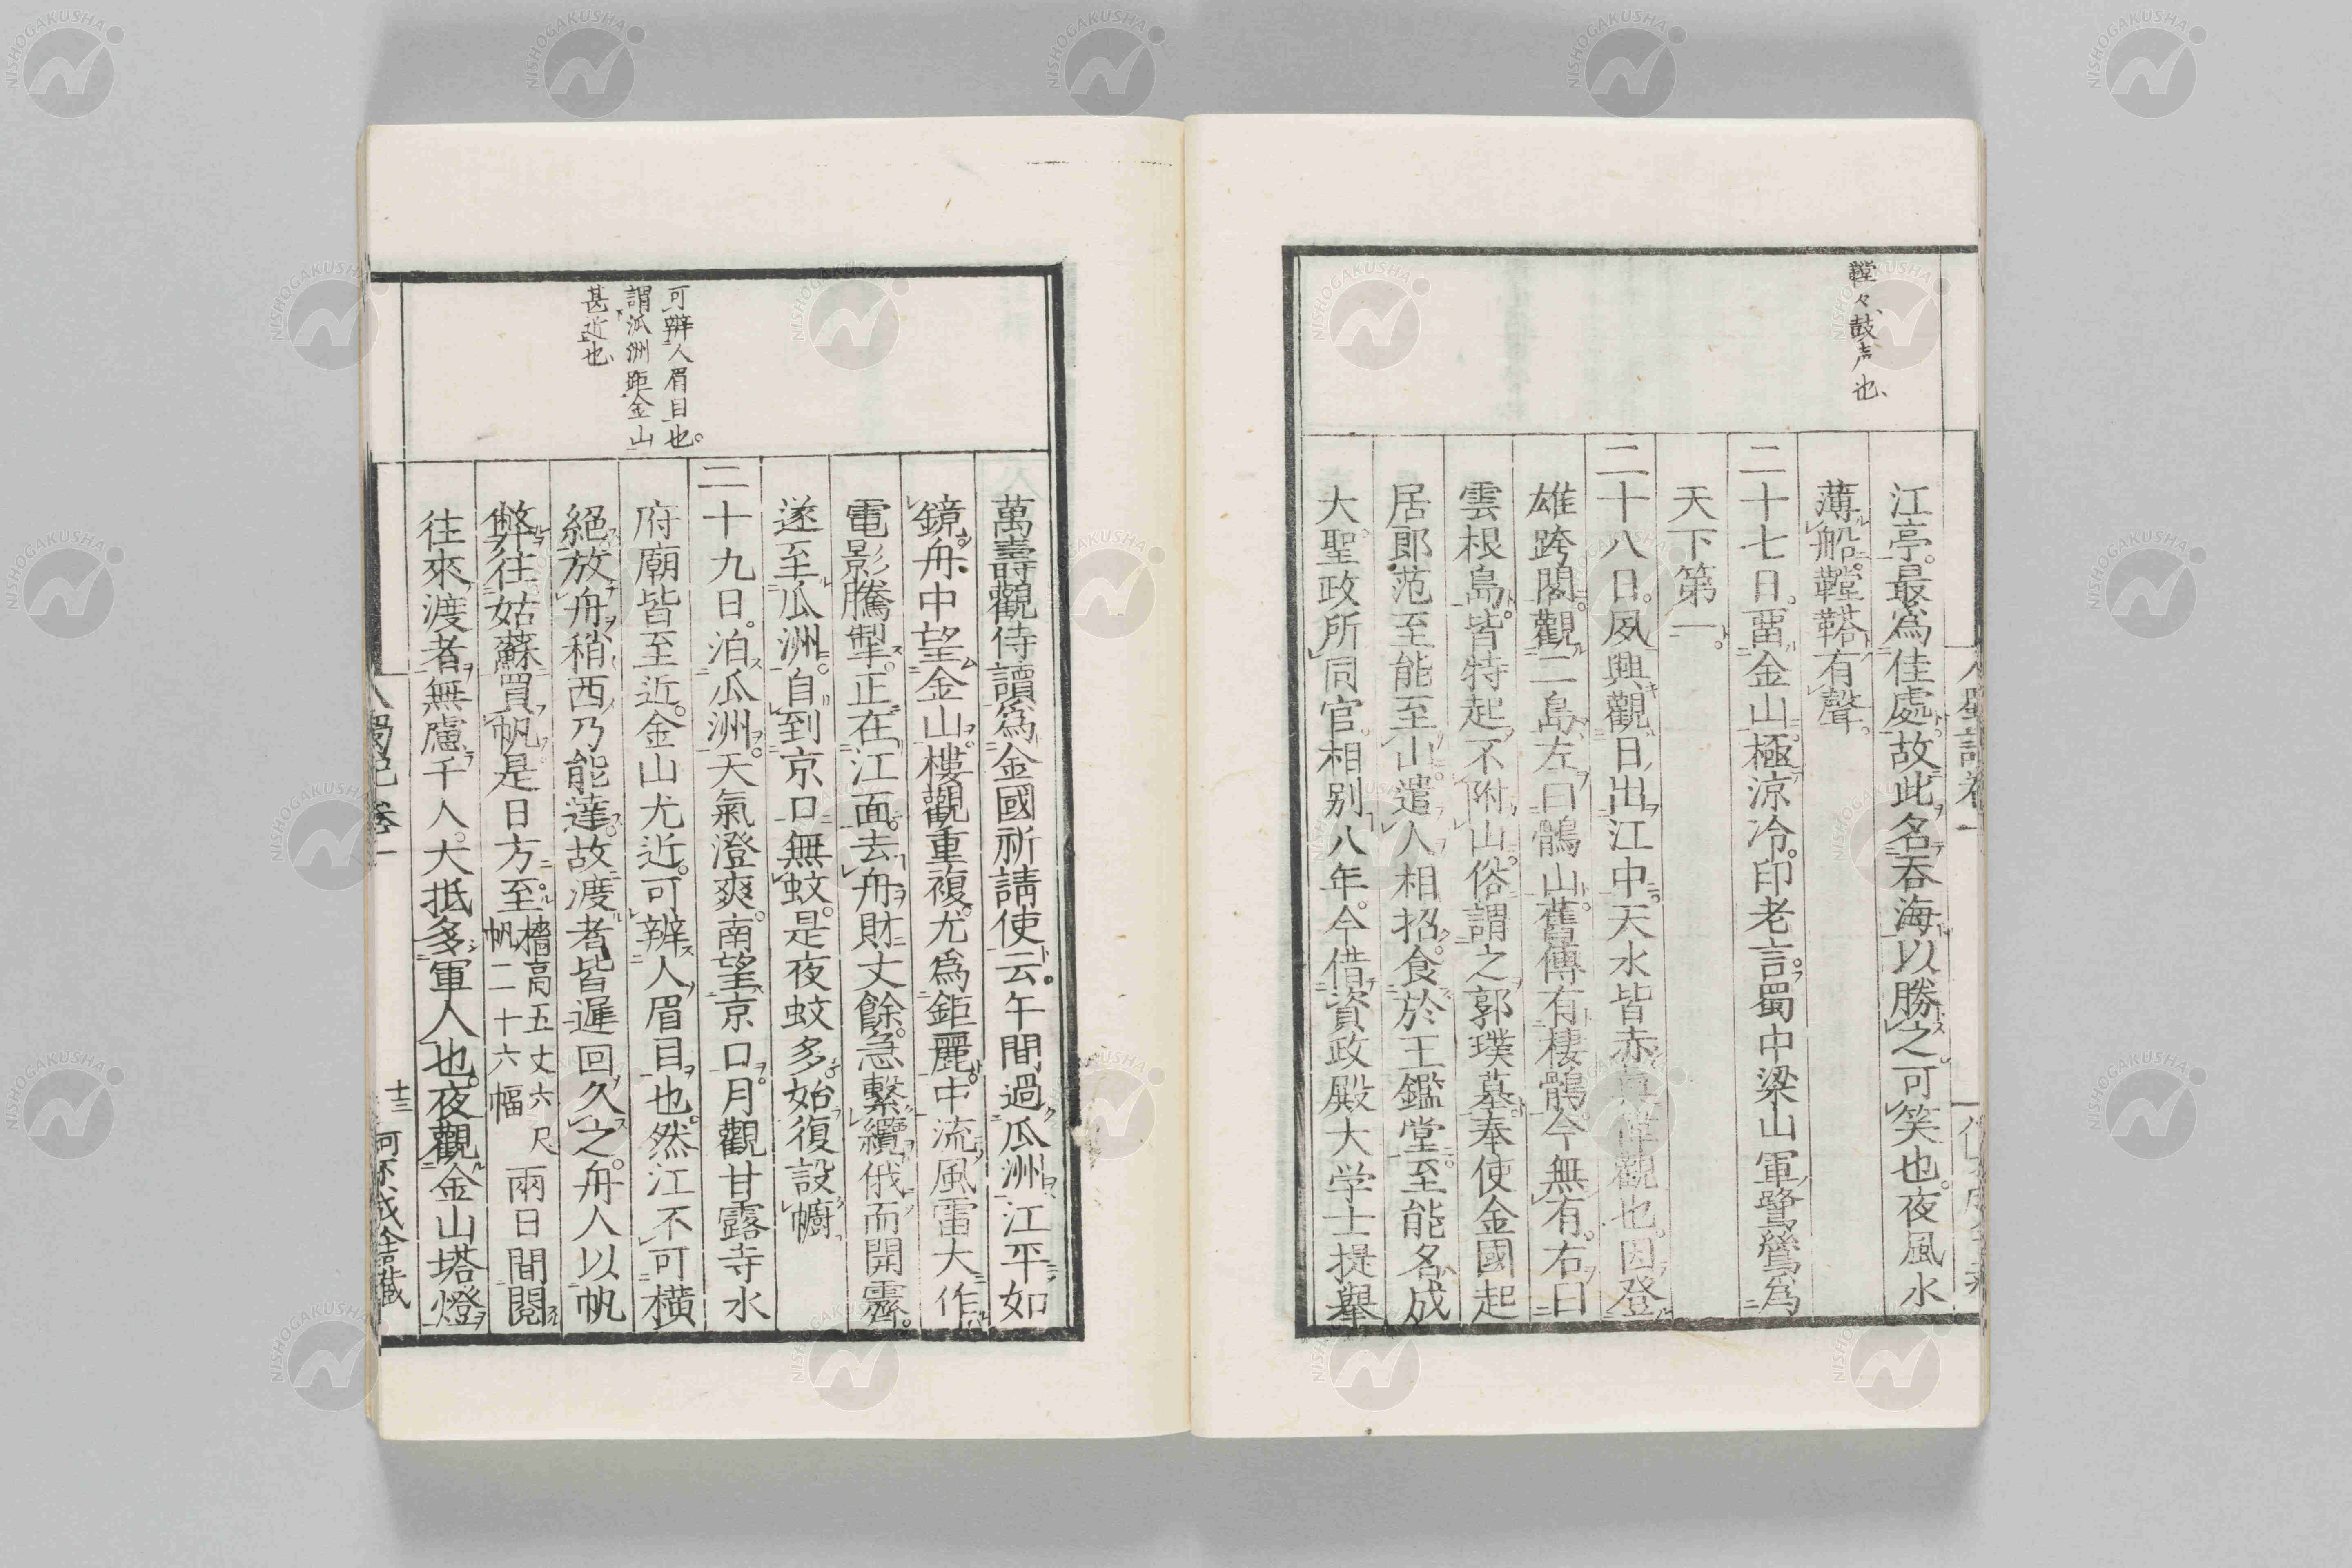 鞺々、鼓声也、
江亭。最爲佳處。故此名。吞海以勝之。可笑也。夜風水
薄船。鞺鞳有聲。
二十七日。畱金山。極涼冷。印老言。蜀中梁山軍鷺鷥爲
天下第一。
二十八日。夙興觀日出江中。天水皆赤。眞偉觀也。因登
雄跨閣。觀二島。左曰鶻山。舊傳有棲鶻。今無有。右曰
雲根島。皆特起不附山。俗謂之郭璞墓。奉使金國起
居郎范至能至山。遣人相招。食於玉鑑堂。至能名成
大。聖政所同官。相別八年。今借資政殿大学士提舉
萬壽觀侍讀爲金國祈請使云。午間過瓜洲。江平如
鏡。舟中望金山。樓觀重複。尤爲鉅麗。中流風雷大作。
電影騰掣。正在江面。去舟財丈餘。急繫纜。俄而開霽。
遂至瓜洲。自到京口無蚊。是夜蚊多。始復設幮。
二十九日。泊瓜洲。天氣澄爽。南望京口。月觀甘露寺水
府廟皆至近。金山尤近。可辨人眉目也。然江不可橫
絕。放舟稍西。乃能達。故渡者皆遲回久之。舟人以帆
弊。往姑蘇買帆。是日方至。檣高五丈六尺帆二十六幅兩日間閱
往來渡者無慮千人。大抵多軍人也。夜觀金山塔燈
可辨人眉目也。
謂瓜洲距金山
甚近也、
入蜀記卷一
十三